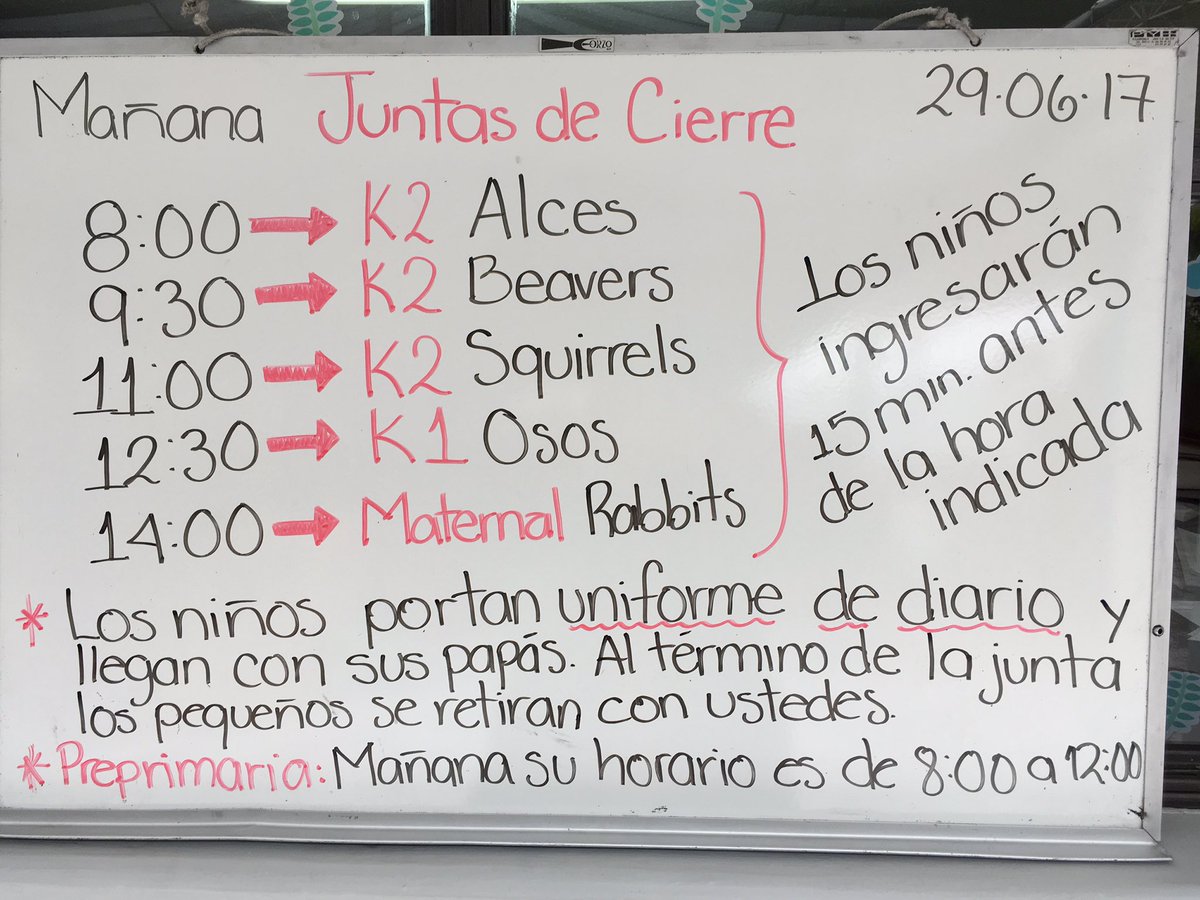 CORZO
PMH
Mañana Juntas de Cierre 29.06.17
8:00 → K2 Alces
9:30 → K2 Beavers
11:00 → K2 Squirrels
12:30 → K1 Osos
14:00 → Maternal Rabbits
Los niños
ingresarán
15 min. antes
de la hora
indicada
* Los niños portan uniforme de diario y
llegan con sus papás. Al término de la junta
los pequeños se retiran con ustedes.
* Preprimaria: Mañana su horario es de 8:00 a 12:00